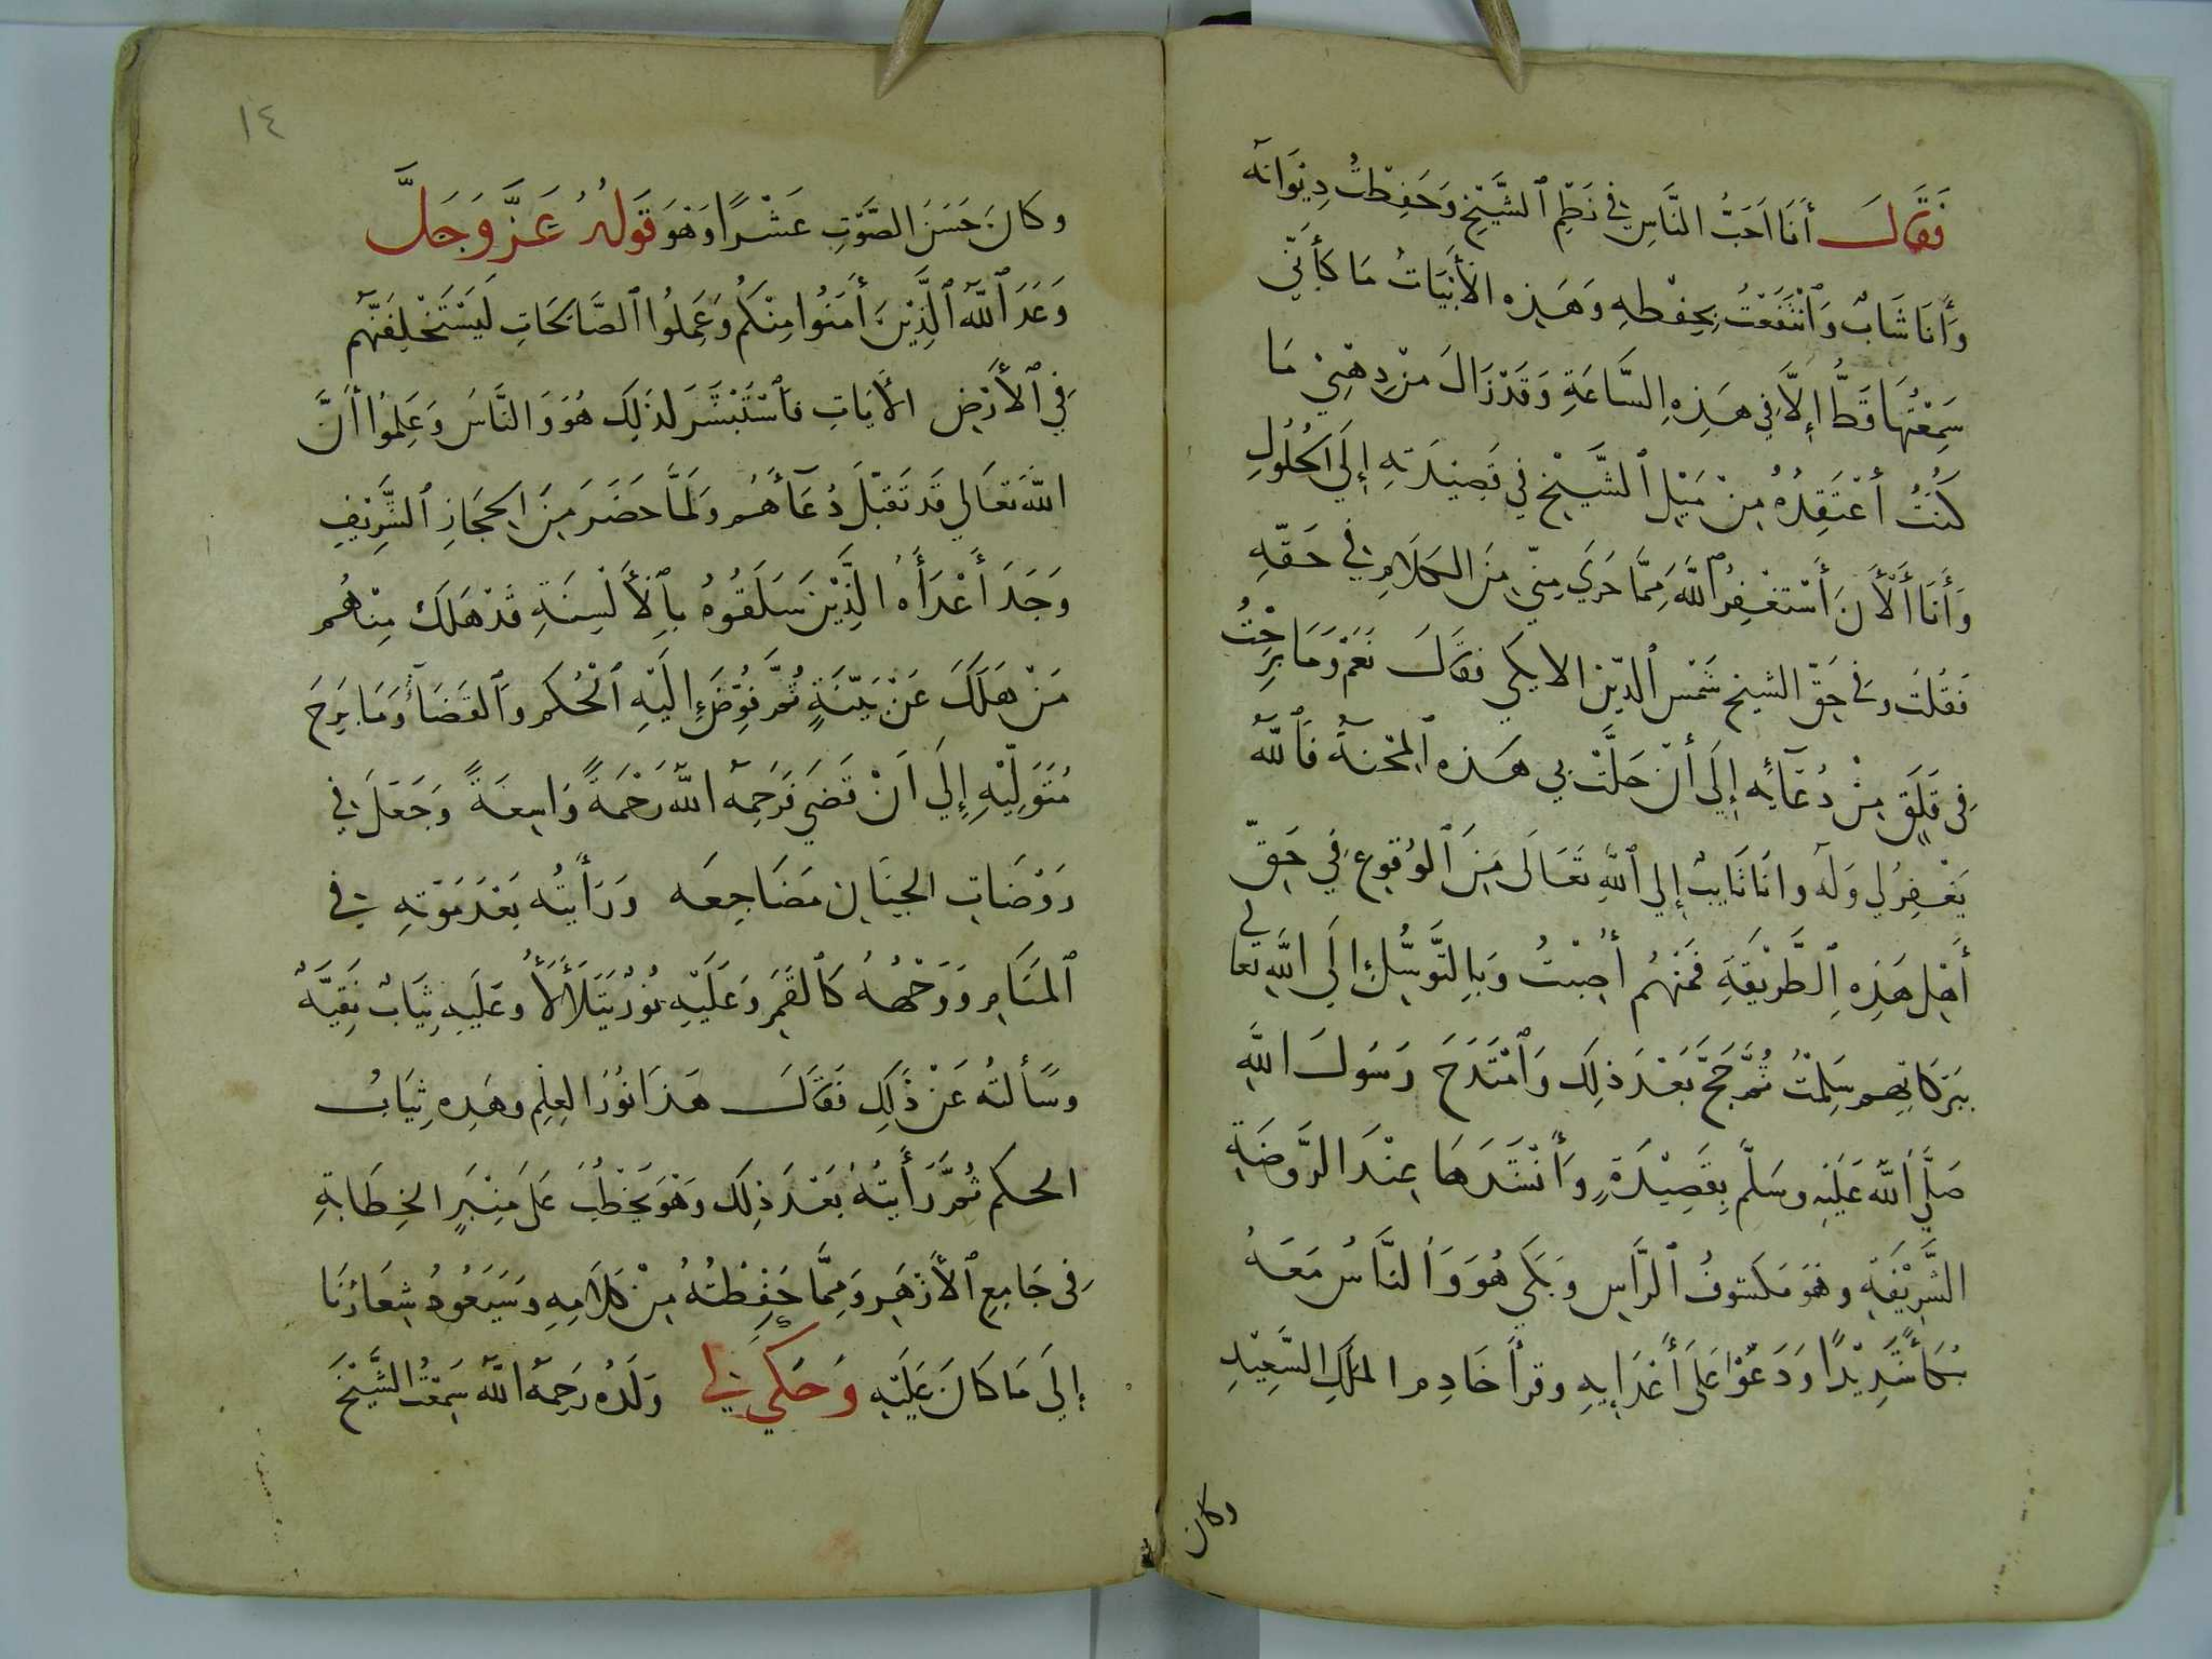 فَقَالَ أَنَا اَحَبُّ النَّاسِ فِي نَظْمِ ٱلشَّيْخِ وَحَفِظْتُ دِيْوَانَهُ
وَأَنَا شَابٌ وَٱنْتَفَعْتُ بِحِفْظِهِ وَهَذِهِ الأَبْيَاتُ مَا كَأَنِّي
سَمِعْتُهَا قَطُّ إِلَّا فِي هَذِهِ السَّاعَةِ وَقَدْ زَالَ مِنْ ذِهْنِيْ مَا
كُنْتُ أَعْتَقِدُهُ مِنْ مَيْلِ ٱلشَّيْخِ فِي قَصِيْدَتِهِ إِلَي الْحُلُولِ
وَأَنَا أَلْأَنَ أَسْتَغْفِرُ ٱللَّهَ مِمَّا جَرَي مِنِّي مِنَ الْكَلَامِ فِي حَقِّهِ
فَقُلْتُ وَفِي حَقِّ الشيخِ شَمْسِ ٱلدِّيْنِ الايكي فَقَالَ نَعَمْ وَمَا بَرِحْتُ
فِي قَلَقٍ مِنْ دُعَآئِهِ إِلَي أَنْ حَلَّتْ بِي هَذِهِ ٱلْمِحْنَةُ فَٱللَّهُ
يَغْفِرُ لِي وَلَهُ وانَا تَايِبٌ إِلي ٱللَّهِ تَعَالَى مِنَ ٱلْوُقُوعِ فِي حَقِّ
أَهْلِ هَذِهِ ٱلطَّرِيْقَةِ فَمِنْهُم أُصِبْتُ وَبِالتَّوَسُّلِ إِلَي اللَّهِ تعالي
بِبَرَكَاتِهِم سَلِمْتُ ثُمَّ حَجَّ بَعْدَ ذَلِكَ وَٱمْتَدَحَ رَسُولَ اللَّهِ
صَلَّي ٱللَّهُ عَلَيْهِ وسَلَّم بِقَصِيْدَةٍ وَأَنْشَدَهَا عِنْدَ الرَّوضَةِ
الشَّرِيْفَةِ وهْوَ مَكشوفُ ٱلرَّاسِ وَبَكَي هُوَ وَالنَّاسُ مَعَهُ
بُكَاءً شَدِيْدًا وَدَعَوْا عَلَى أَعْدَايِهِ وقرأَ خَادِمِ الملكِ السَّعِيْدِ
وكان
١٤
وكَانَ حَسَنَ الصَّوْتِ عَشْرًا وَهْوَ قَولُهُ عَزَّ وَجَلَّ
وَعَدَ ٱللَّهُ ٱلَّذِيْنَ أَمَنُوا مِنْكُمْ وَعَمِلُوا ٱلصَّالِحَاتِ لَيَسْتَخْلِفَنَّهُم
فِي ٱلأَرْضِ الأَيَاتِ فَٱسْتَبْشَرَ لذَلِكَ هُوَ وَالنَّاسُ وَعَلِمُوا أَنَّ
اللَّهَ تَعَالَي قَد تَقَبَّلَ دُعَآءَهُم وَلَمَّا حَضَرَ مِنَ الحِجَازِ ٱلشَّرِيْفِ
وَجَدَ أَعْدَأَهُ الَّذِيْنَ سَلَقُوهُ بِٱلأَلْسِنَةِ قَدْ هَلَكَ مِنْهُم
مَنْ هَلَكَ عَنْ بَيِّنَةٍ ثُمَّ فُوِّضَ إِلَيْهِ ٱلْحُكم وَٱلقَضَآءُ وَمَا بَرِحَ
مُتَوَلِّيْهِ إِلَي اَنْ قَضَي فَرَحِمَهُ اللَّهُ رَحْمَةً وَاسِعَةً وَجَعَلَ فِي
رَوْضَاتِ الجِنَانِ مَضَاجِعَه وَرَأَيتُهُ بَعْدَ مَوْتِهِ فِي
ٱلمَنَامِ وَوَجْهُهُ كَٱلقَمَرِ وَعَلَيْهِ نُوْرٌ يَتَلَأْلَأُ وعَلَيهِ ثِيَابٌ نَقِيَّةٌ
وسَأَلتُهُ عَنْ ذَلِكَ فَقَالَ هَذَا نُوْرُ العِلْمِ وهَذِه ثِيَابُ
الحكم ثُمَّ رَأَيتُهُ بَعْدَ ذلِكَ وَهْوَ يَخْطُبُ عَلَى مِنْبَرِ الخِطَابَةِ
فِي جَامِعِ ٱلأَزْهَرِ وَمِمَّا حَفِظْتُهُ مِنْ كَلَامِهِ وَسَيَعُودُ شِعَارُنَا
إِلَى مَا كَانَ عَلَيْهِ وَحَكَي لِي وَلَدُهُ رَحِمَهُ اللَّهُ سَمِعْتُ الشَّيْخَ